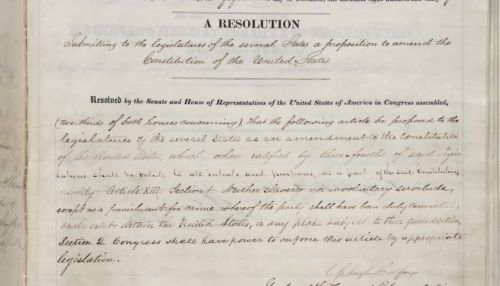 A RESOLUTION
Submitting to the legislatures of the several States a proposition to amend the
Constitution of the United States
Resolved by the Senate and House of Representatives of the United States of America in Congress assembled,
(two thirds of both houses concurring), That the following article be proposed to the
legislatures of the several States as an amendment to the Constitution
of the United States, which, when ratified by three-fourths of said Legis
latures shall be valid, to all intents and purposes, as a part of the said Constitution,
namely: Article XIII. Section 1. Neither slavery nor involuntary servitude,
except as a punishment for crime whereof the party shall have been duly convicted,
shall exist within the United States, or any place subject to their jurisdiction.
Section 2. Congress shall have power to enforce this article by appropriate
legislation.
Schuyler Colfax